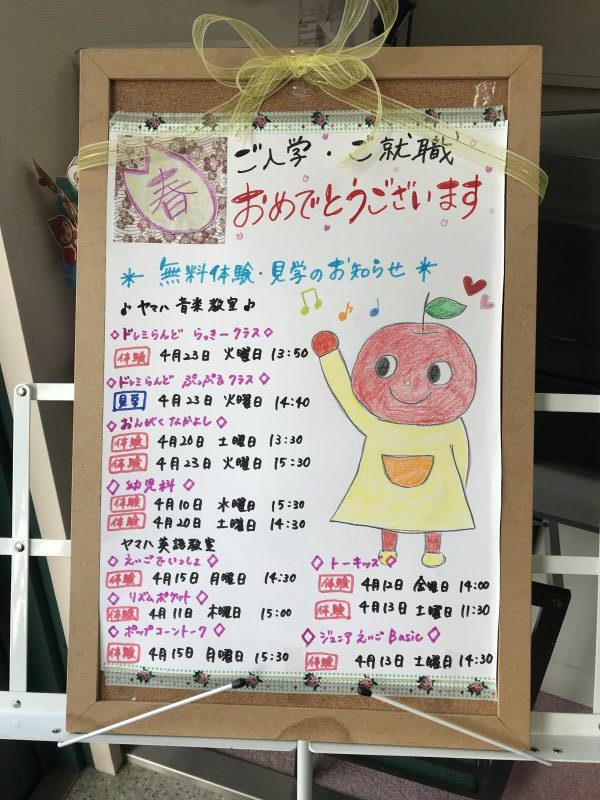 春
ご入学・ご就職
おめでとうございます
＊ 無料体験・見学のお知らせ ＊
♪ヤマハ 音楽教室♪
◇ドレミらんど らっきークラス◇
体験 4月23日 火曜日 13:50
◇ドレミらんど ぷっぷるクラス◇
見学 4月23日 火曜日 14:40
◇おんがくなかよし◇
体験 4月20日 土曜日 13:30
体験 4月23日 火曜日 15:30
◇幼児科◇
体験 4月10日 水曜日 15:30
体験 4月20日 土曜日 14:30
ヤマハ英語教室
◇えいごでいっしょ◇
体験 4月15日 月曜日 14:30
◇リズムポケット◇
体験 4月11日 木曜日 15:00
◇ポップコーントーク◇
体験 4月15日 月曜日 15:30
◇トーキッズ◇
体験 4月12日 金曜日 14:00
体験 4月13日 土曜日 11:30
◇ジュニアえいご Basic◇
体験 4月13日 土曜日 14:30